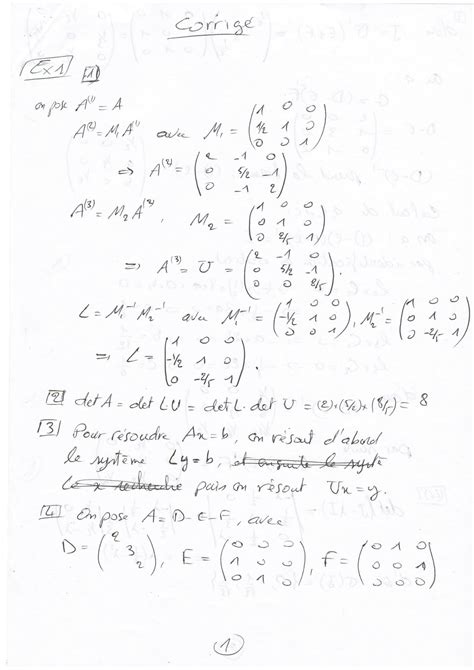 Corrigé
Ex1 1
on pose A^(1) = A
A^(2) = M₁A^(1) avec M₁ = (1 0 0; 1/2 1 0; 0 0 1)
⇒ A^(2) = (2 -1 0; 0 5/2 -1; 0 -1 2)
A^(3) = M₂A^(2), M₂ = (1 0 0; 0 1 0; 0 2/5 1)
⇒ A^(3) = U = (2 -1 0; 0 5/2 -1; 0 0 8/5).
L = M₁⁻¹M₂⁻¹ avec M⁻¹ = (1 0 0; -1/2 1 0; 0 0 1), M₂⁻¹ = (1 0 0; 0 1 0; 0 -2/5 1)
⇒ L = (1 0 0; -1/2 1 0; 0 -2/5 1)
2 det A = det LU = det L · det U = (2)×(5/2)×(8/5) = 8
3 Pour résoudre Ax=b, on résout d'abord
le système Ly=b, et ensuite le syst
Le x recherché puis on résout Ux=y.
4 On pose A = D-E-F, avec
D = (2 3 2), E = (0 0 0; 1 0 0; 0 1 0), F = (0 1 0; 0 0 1; 0 0 0)
1